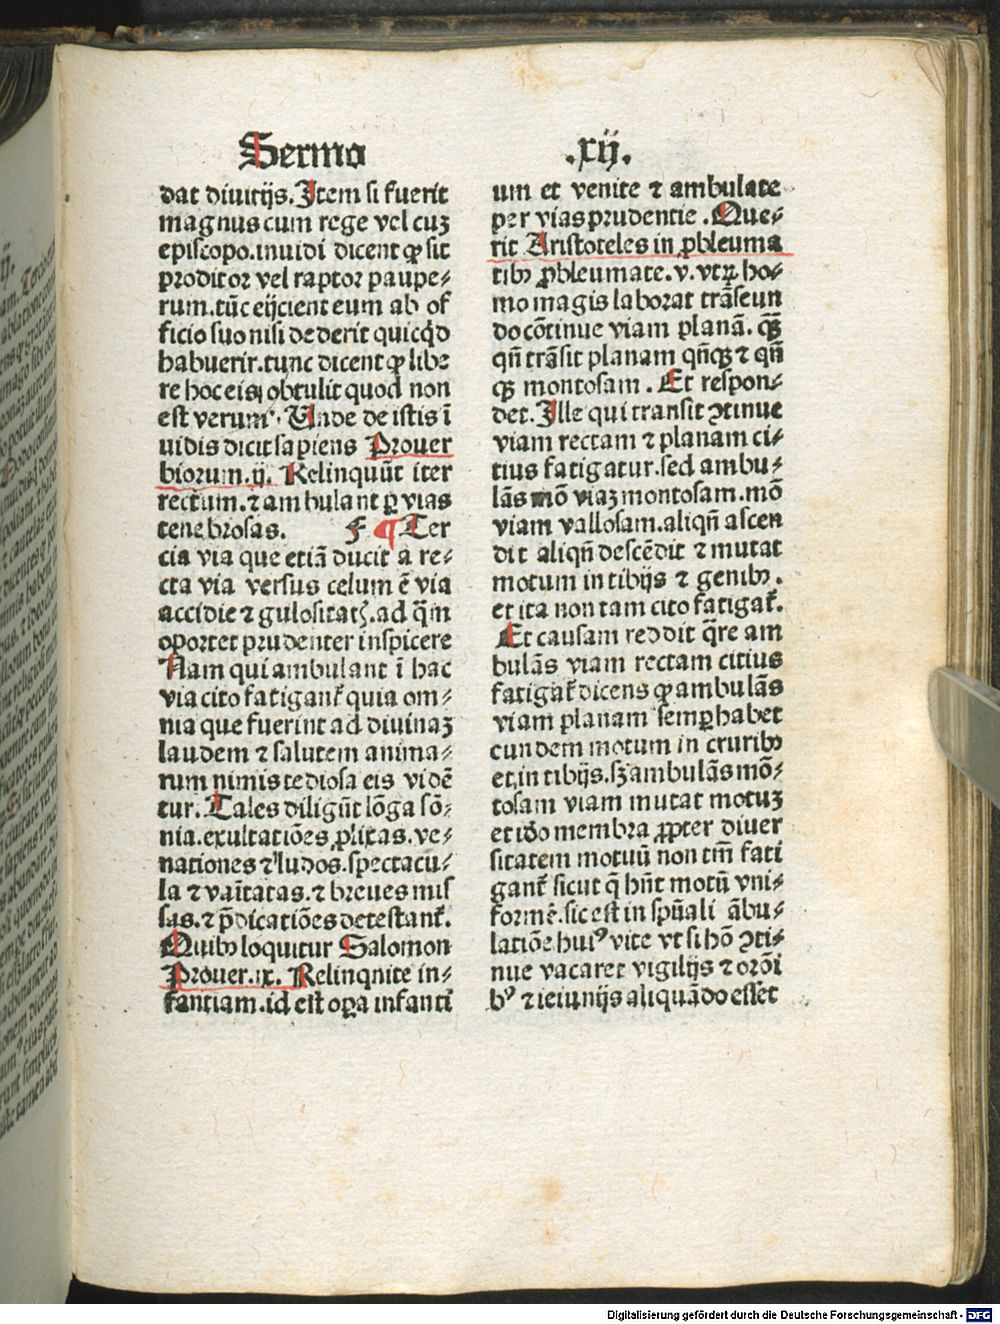 Sermo .xij.
dat diuitijs. Item si fuerit
magnus cum rege vel cuȝ
episcopo. inuidi dicent ꝙ sit
proditor vel raptor paupe⸗
rum. tūc eijcient eum ab of
ficio suo nisi dederit quicq̇d
habuerit. tunc dicent ꝙ libe
re hoc eis obtulit quod non
est verum. Unde de istis ī
uidis dicit sapiens Prouer
biorum .ij. Relinquūt iter
rectum. ⁊ ambulant ꝑ vias
tenebrosas. F ¶ Ter
cia via que etiā ducit a re⸗
cta via versus celum ē via
accidie ⁊ gulositatꝭ. ad q̄m
oportet prudenter inspicere
Nam qui ambulant ī hac
via cito fatigant᷑ quia om⸗
nia que fuerint ad diuinaȝ
laudem ⁊ salutem anima⸗
rum nimis tediosa eis vidē
tur. Tales diligūt lōga sō⸗
nia. exultatiōes ꝓlixas. ve⸗
nationes ⁊ ludos. spectacu⸗
la ⁊ vanītatas. ⁊ breues mis
sas. ⁊ p̄dicatiōes detestant᷑.
Quibꝫ loquitur Salomon
Prouer. ix. Relinqnite in⸗
fantiam. id est oꝑa infanti
um et venite ⁊ ambulate
per vias prudentie. Que⸗
rit Aristoteles in ꝓbleuma
tibꝫ ꝓbleumate. v. vtꝝ ho⸗
mo magis laborat trāseun
do cōtinue viam planā. ꝙ̄
qn̄ trāsit planam qn̄qꝫ ⁊ qn̄
qꝫ montosam. Et respon⸗
det. Ille qui transit ꝯtinue
viam rectam ⁊ planam ci⸗
tius fatigatur. sed ambu⸗
lās mō viaȝ montosam. mō
viam vallosam. aliqn̄ ascen
dit aliqn̄ descēdit ⁊ mutat
motum in tibijs ⁊ genibꝫ.
et ita non tam cito fatigat᷑.
Et causam reddit q̄re am
bulās viam rectam citius
fatigat᷑ dicens ꝙ ambulās
viam planam semꝑ habet
eundem motum in cruribꝫ
et in tibijs. sȝ ambulās mō⸗
tosam viam mutat motuȝ
et iō membra ꝓpter diuer
sitatem motuū non tm̄ fati
gant᷑ sicut q̄ hn̄t motū vni⸗
formē. sic est in spūali ābu⸗
latiōe huiꝰ vite vt si hō ꝯti⸗
nue vacaret vigilijs ⁊ orōi
bꝰ ⁊ ieiunijs aliquādo esset
Digitalisierung gefördert durch die Deutsche Forschungsgemeinschaft - DFG